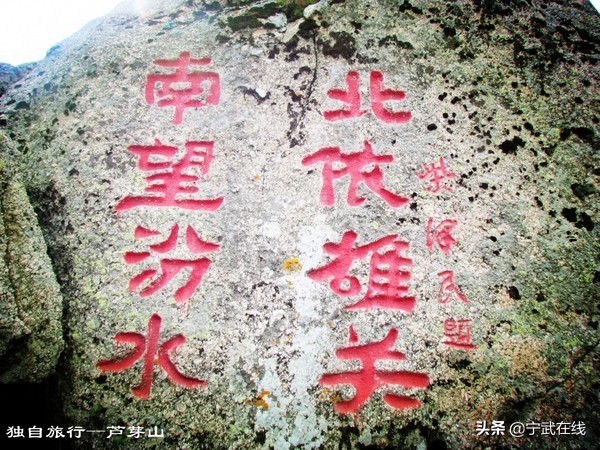 南望汾水
北依雄关
泽民题
独自旅行—芦芽山
头条 @宁武在线